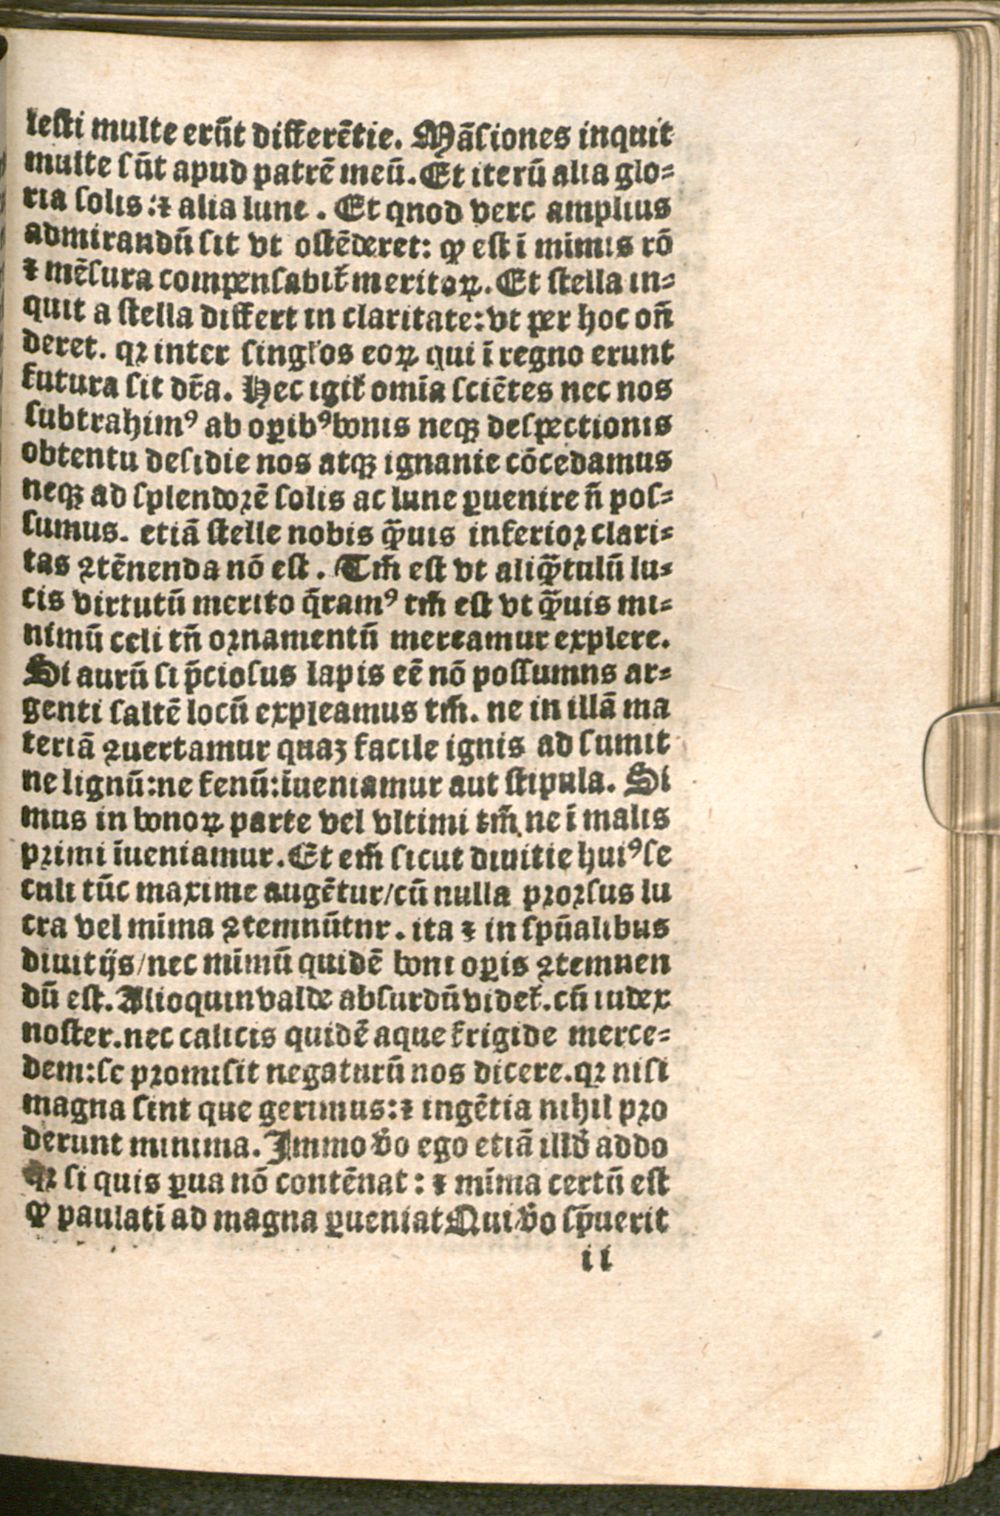 lesti multe erūt differētie. Māsiones inquit
multe sūt apud patrē meū. Et iterū alia glo⸗
ria solis: ⁊ alia lune . Et qnod verc amplius
admirandū sit vt ostēderet: ꝙ est ī minimis rō
⁊ mēsura compensabitꝭ meritoꝝ. Et stella in⸗
quit a stella differt in claritate: vt per hoc on̄
deret. qꝛ inter singłos eoꝝ qui ī regno erunt
futura sit dr̄a. Hec igitꝭ omīa sciētes nec nos
subtrahimꝰ ab oꝑibꝰ bonis neqꝫ despectionis
obtentu desidie nos atqꝫ ignanie cōcedamus
neqꝫ ad splendoꝛē solis ac lune ꝑuenire n̄ pos⸗
sumus. etiā stelle nobis q̄uis inferioꝛ clari⸗
tas ꝯtēnenda nō est . Tm̄ est vt aliq̄tulū lu⸗
cis virtutū merito q̄ramꝰ tm̄ est vt q̄uis mi⸗
nimū celi tn̄ oꝛnamentū mereamur explere.
Si aurū si p̄ciosus lapis eē nō possumns ar⸗
genti saltē locū expleamus tm̄. ne in illā ma
teriā ꝯuertamur quaꝫ facile ignis ad sumit
ne lignū: ne fenū: īueniamur aut stipula. Si
mus in bonoꝝ parte vel vltimi tm̄ ne ī malis
pꝛimi īueniamur. Et em̄ sicut diuitie huiꝰ se
culi tūc maxime augētur/cū nulla pꝛoꝛsus lu
cra vel mīma ꝯtemnūtnr. ita ⁊ in spūalibus
diuitijs/nec mīmū quidē boni oꝑis ꝯtemnen
dū est. Alioquin valde absurdū videtꝭ. cū iudex
noster. nec calicis quidē aque frigide merce⸗
dem: se pꝛomisit negaturū nos dicere. qꝛ nisi
magna sint que gerimus: ⁊ ingētia nihil pꝛo
derunt minima. Immo v̄o ego etiā illd̄ addo
qꝛ si quis ꝑua nō contēnat: ⁊ mīma certū est
ꝙ paulatī ad magna ꝑueniat Qui v̄o sp̄uerit
ii